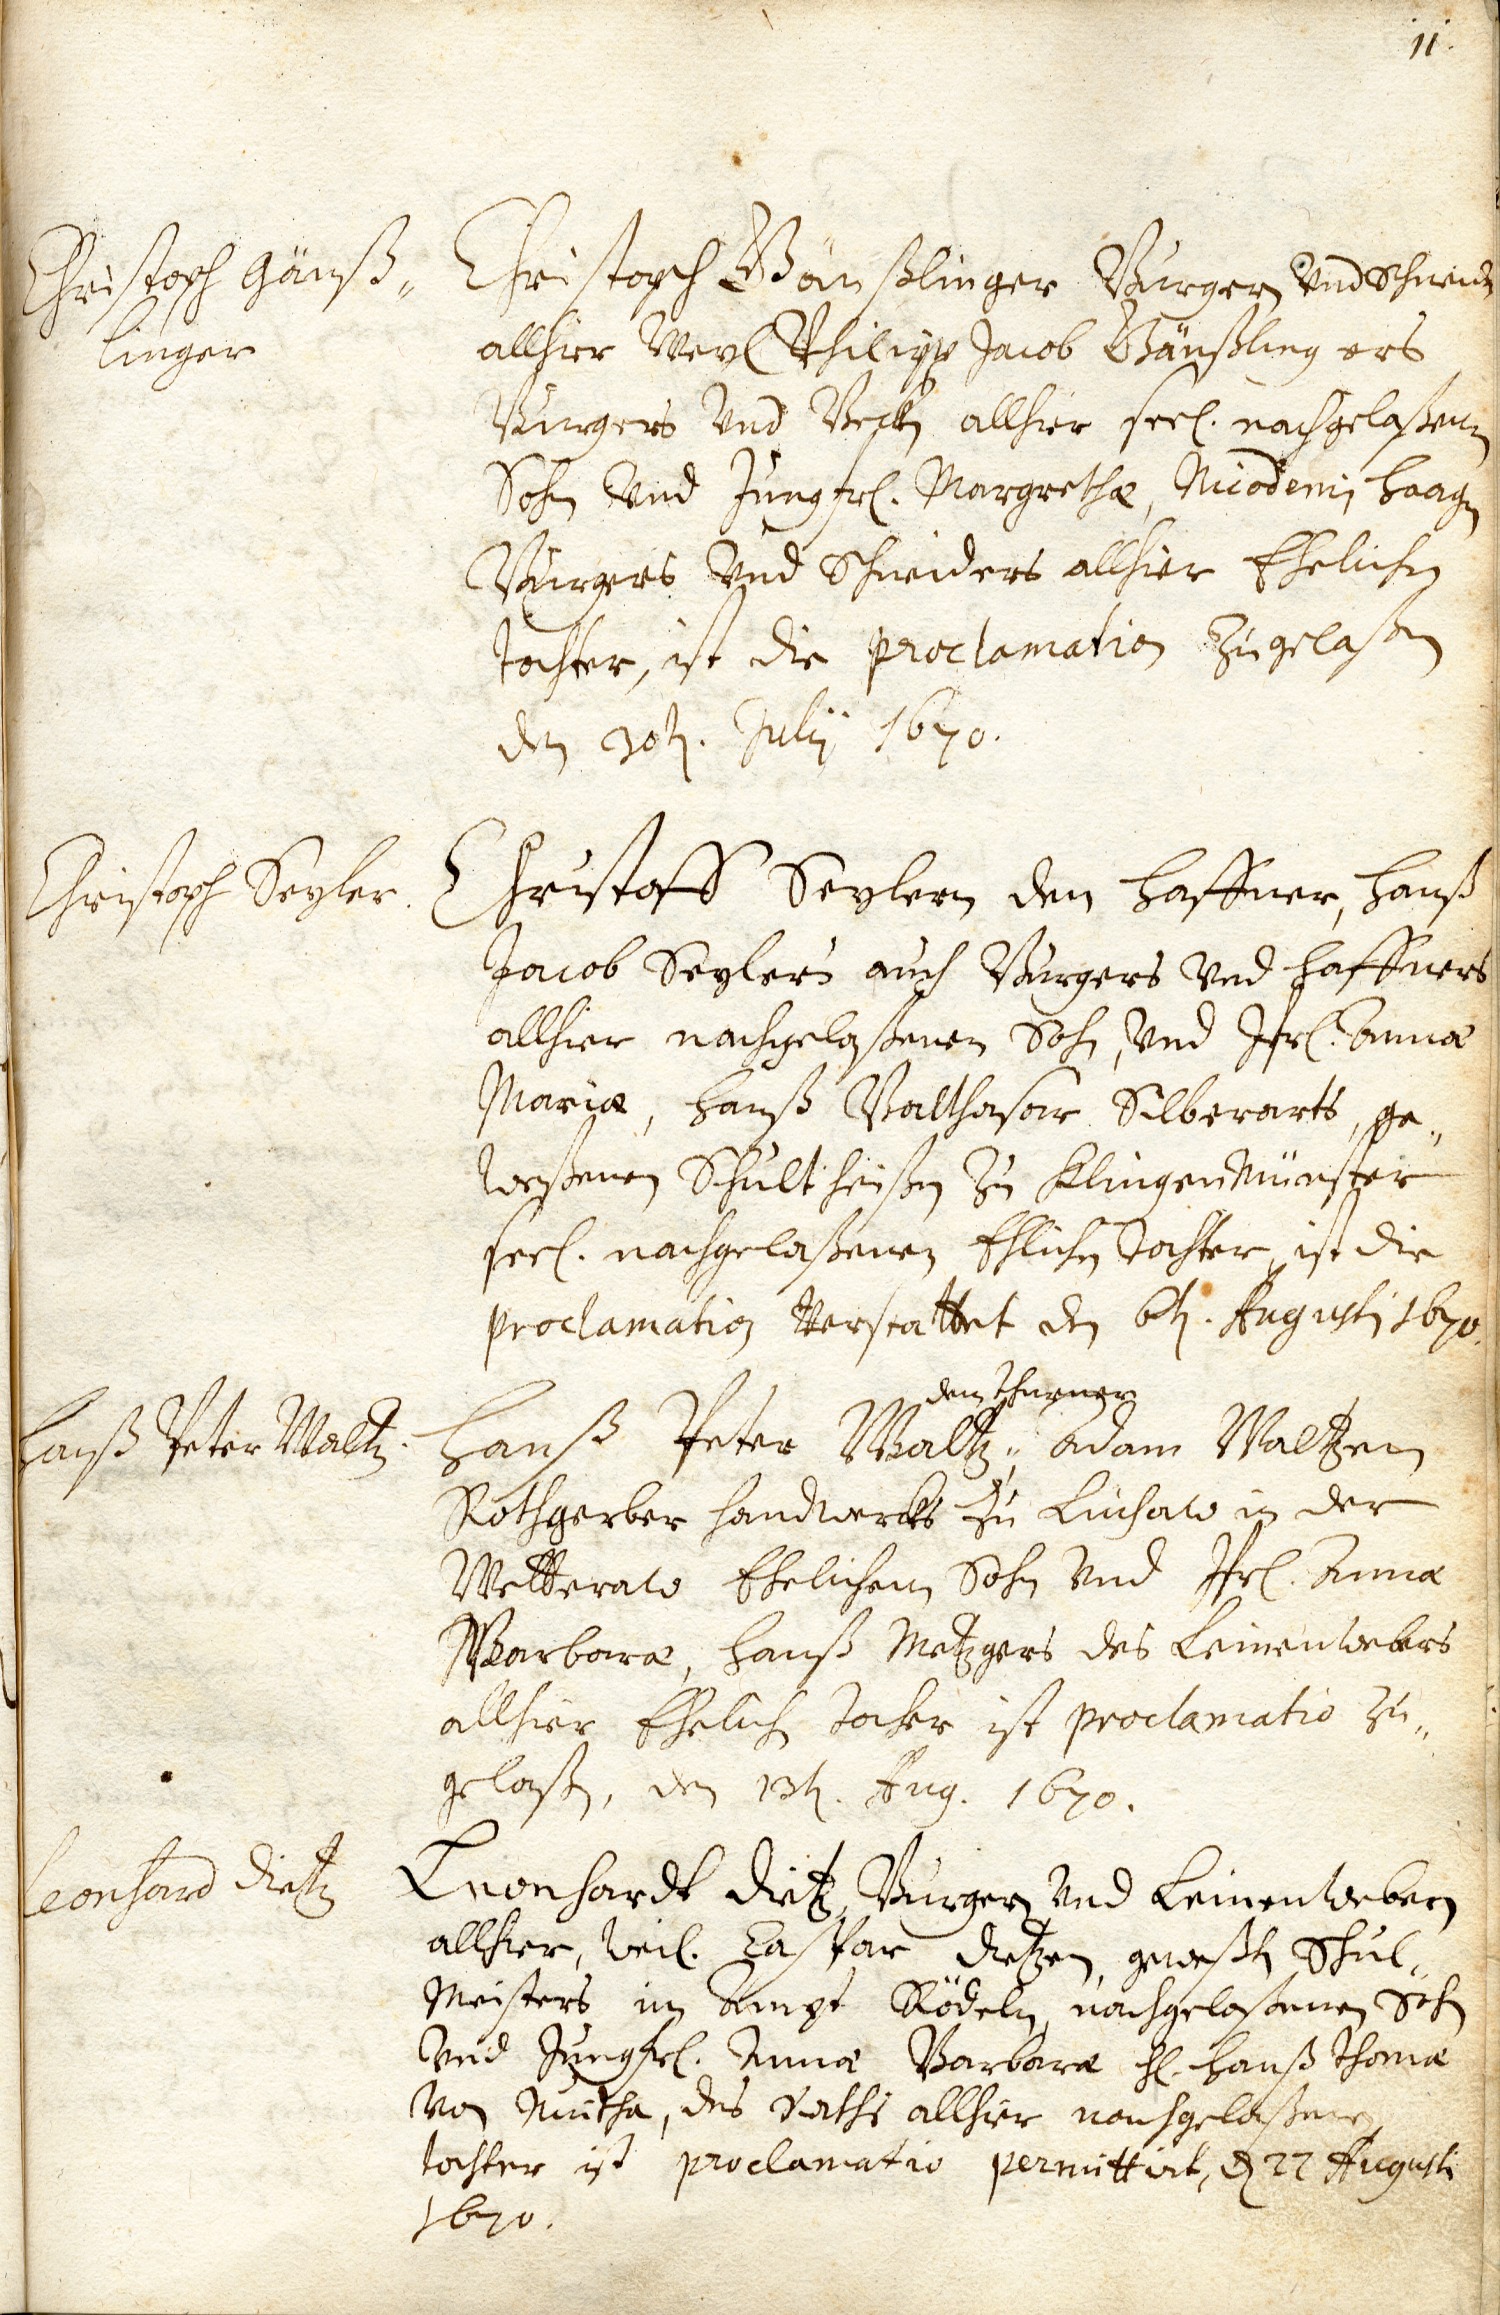 11.
Christoph Gänß-
linger
Christoph Gänßlinger Burgern Vnd Schneidr
allhier Weyl Philipp Jacob Gänßlingers
Burgers Vnd Becken allhier seel. nachgelaßenen
Sohn Vnd Jungfrl. Margrethæ, Nicodemi Haagen
Burgers Vnd Schneiders allhier Ehelichen
Tochter, ist die proclamation Zugelaßen
den 30t. Julij 1670.
Christoph Seyler.
Christoff Seylern den Haffner, Hanß
Jacob Seylers auch Burgers Vnd Haffners
allhier nachgelaßenen Sohn, Vnd Jfrl. Annæ
Mariæ, Hanß Balthasar Silberarts, ge-
weßenen Schultheißen Zu Klingenmünster
seel. nachgelaßenen Ehlichen Tochter, ist die
proclamation Verstattet den 6t. Augusti 1670.
Hanß Peter Waltz.
den Thurner
Hanß Peter Waltz, Adam Waltzen
Rothgerber Handwercks Zu in der
Wetteraw Ehelichem Sohn Vnd Jfrl. Annæ
Barbaræ, Hanß Metzgers des Leinenwebers
allhier Ehelich Tochter ist proclamatio Zu-
gelaßen, den 13t. Aug. 1670.
Leonhard Dietz
Leonhardt Dietz, Burgern Vnd Leinenwebern
allhier, weil. Caspar Dietzen, geweßten Schul-
Meisters im Ampt Rödeln, nachgelaßenen Sohn
Vnd Jungfrl. Annæ Barbaræ Hl. Hanß Thomæ
Von, des Raths allhier nachgelaßenen
tochter ist proclamatio permittirt, d 22 Augusti
1670.